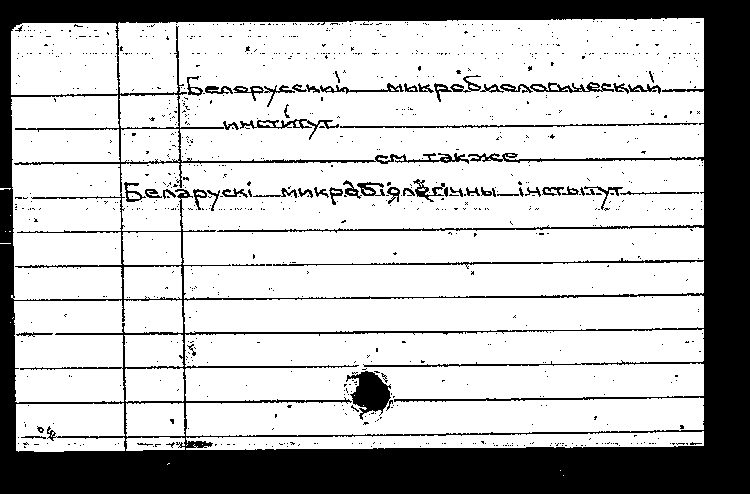 Белорусский микробиологический
институт.
см также
Беларускі микрабіолагічны інстытут.